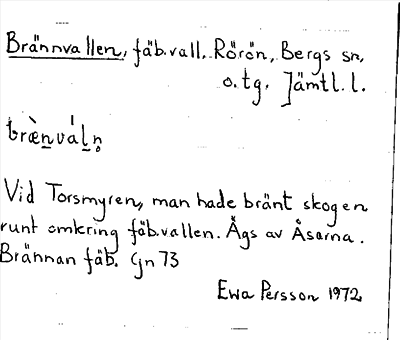 Brännvallen, fäb.vall, Rörön, Bergs sn,
o. tg. Jämtl. l.
bræ̀nválṇ
Vid Torsmyren, man hade bränt skogen
runt omkring fäb.vallen. Ägs av Åsarna.
Brännan fäb. Gn 73
Ewa Persson 1972